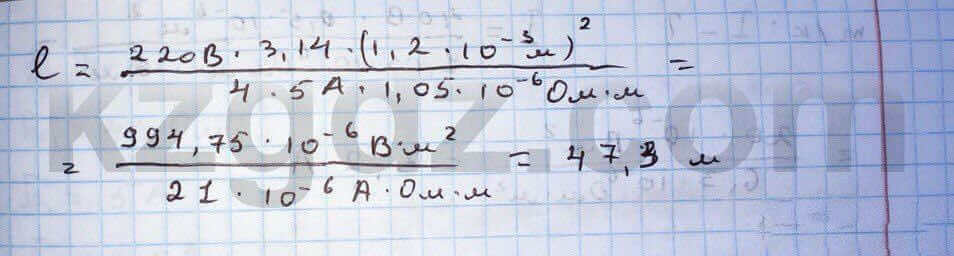 l = 220В · 3,14 · (1,2 · 10⁻³м)² / 4 · 5А · 1,05 · 10⁻⁶Ом·м =
= 994,75 · 10⁻⁶ В·м² / 21 · 10⁻⁶ А·Ом·м = 47,3 м
kzgdz.com